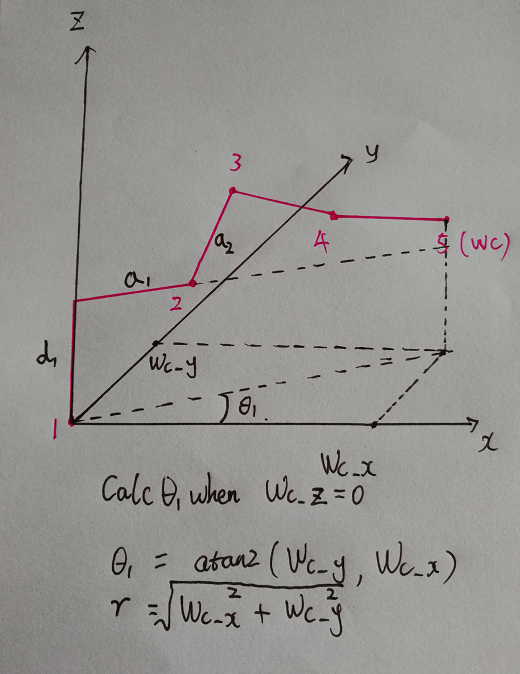 z
3
y
a₂
4
5 (WC)
a₁
2
d₁
Wc-y
θ₁
1
x
Wc-x
Calc θ₁ when Wc-z = 0
θ₁ = atan2 (Wc-y, Wc-x)
r = √(Wc-x² + Wc-y²)